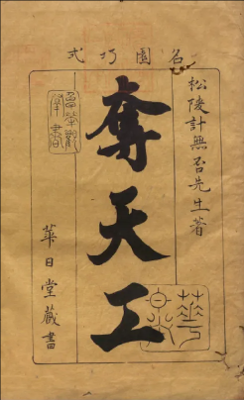 名園巧式
松陵計無否先生著
奪天工
華日堂藏書